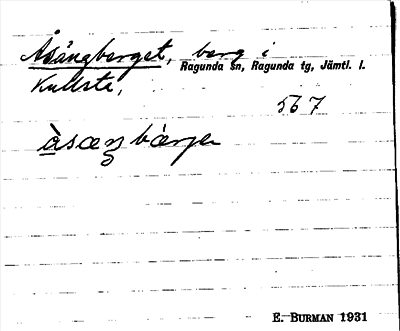 Åsängberget, berg i
Ragunda sn, Ragunda tg, Jämtl. l.
Kullsta,
567
E. BURMAN 1931